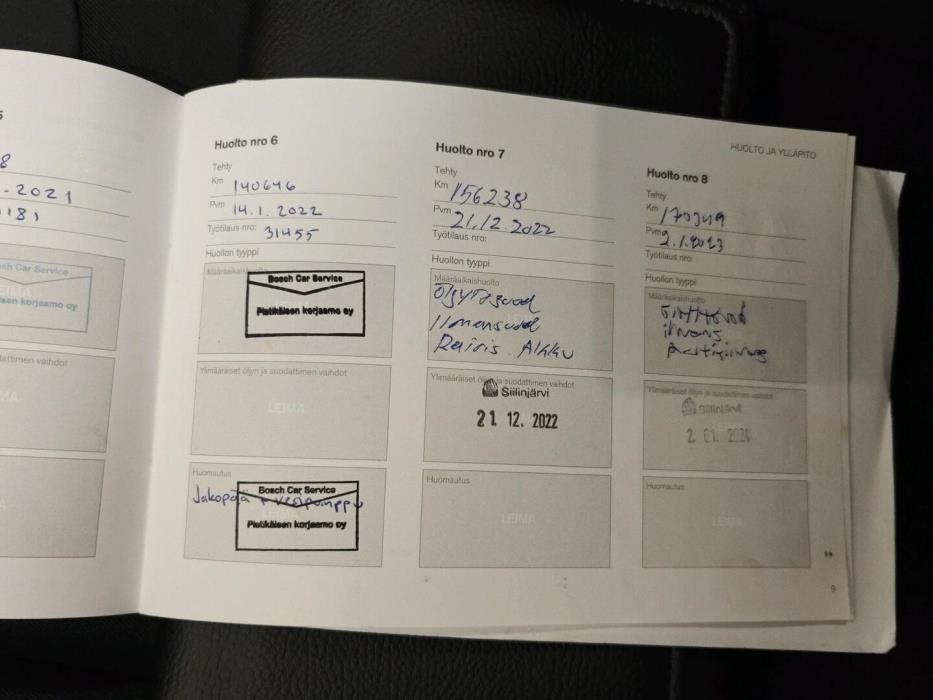 8
.2021
181
Huolto nro 6
Tehty
Km 140646
Pvm 14.1.2022
Työtilaus nro: 31455
Huollon tyyppi
Määräaikaishuolto
Bosch Car Service
Pietikäisen korjaamo oy
Ylimääräiset öljyn ja suodattimen vaihdot
LEIMA
Huomautus
Jakopää + vesipumppu
Bosch Car Service
Pietikäisen korjaamo oy
Huolto nro 7
Tehty
Km 156238
Pvm 21.12.2022
Työtilaus nro:
Huollon tyyppi
Määräaikaishuolto
Akku
Ylimääräiset öljyn ja suodattimen vaihdot
Siilinjärvi
21. 12. 2022
Huomautus
LEIMA
HUOLTO JA YLLÄPITO
Huolto nro 8
Tehty
Km
Pvm 2.1.2023
Työtilaus nro:
Huollon tyyppi
Määräaikaishuolto
Ylimääräiset öljyn ja suodattimen vaihdot
Siilinjärvi
2 01. 2024
Huomautus
LEIMA
9